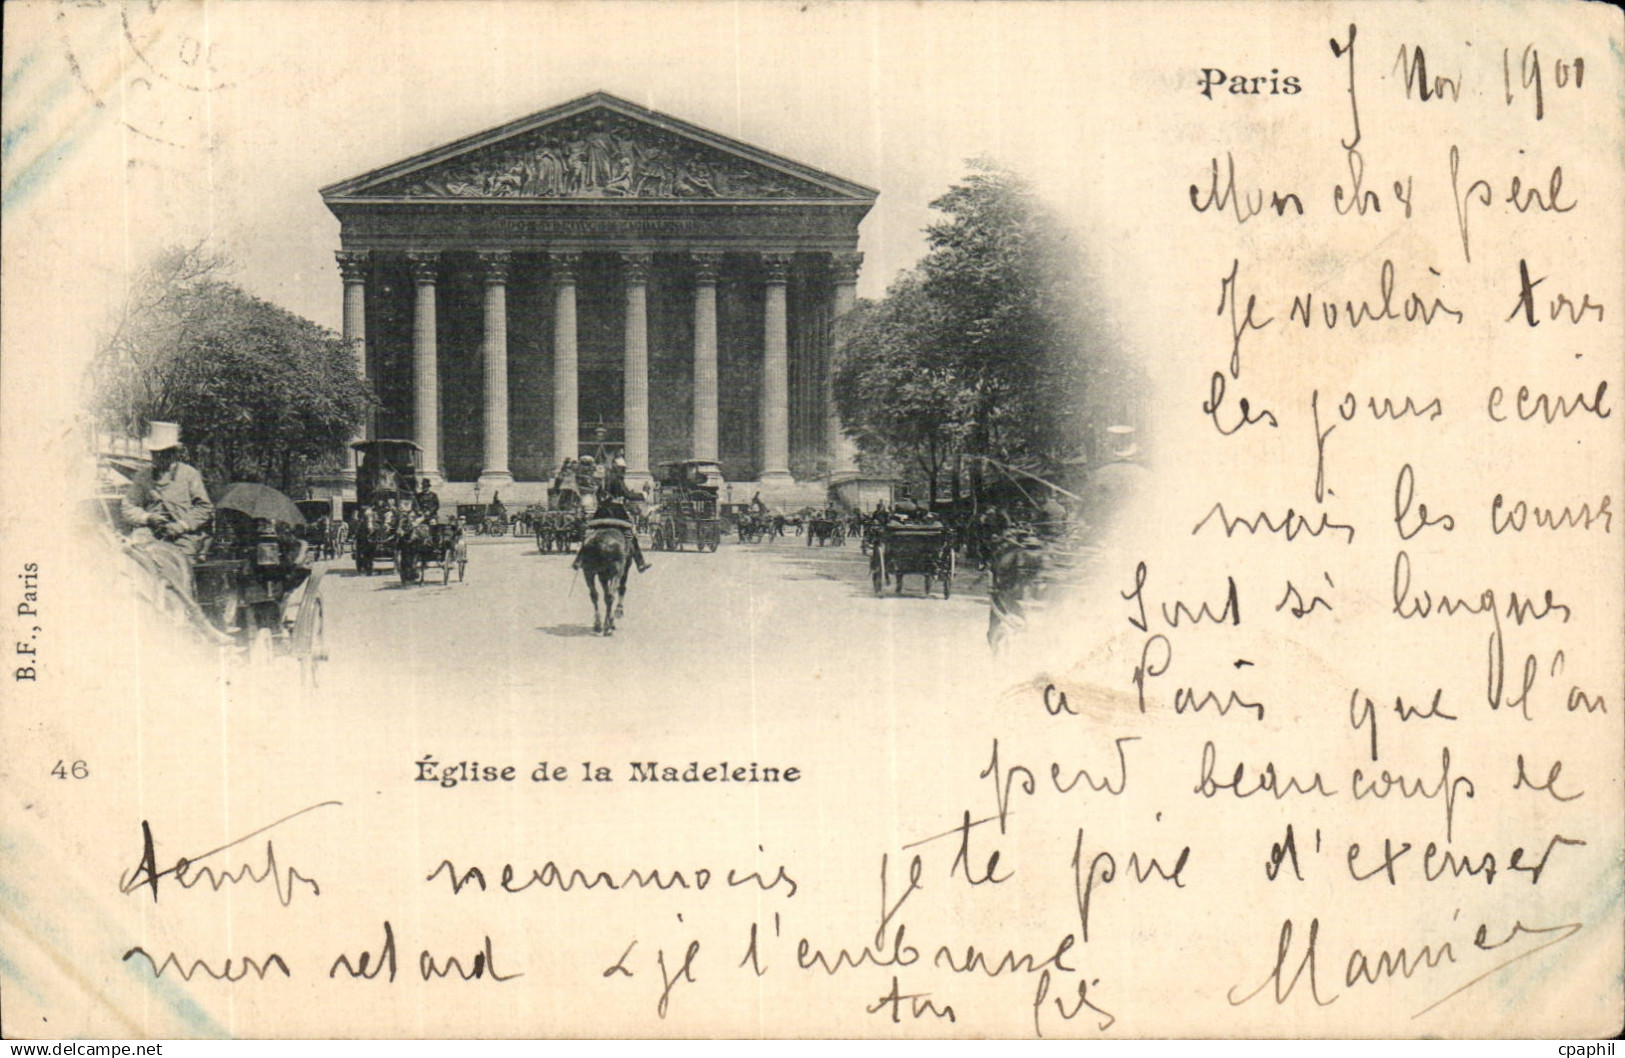 Paris 7 Nov 1901
Mon cher père
Je voulais tous
les jours ecrire
mais les course
sont si longues
a Paris que l'on
perd beaucoup de
temps neanmoins je te prie d'excuser
mon retard & je t'embrasse
ton fils
Église de la Madeleine
46
B.F., Paris
cpaphil